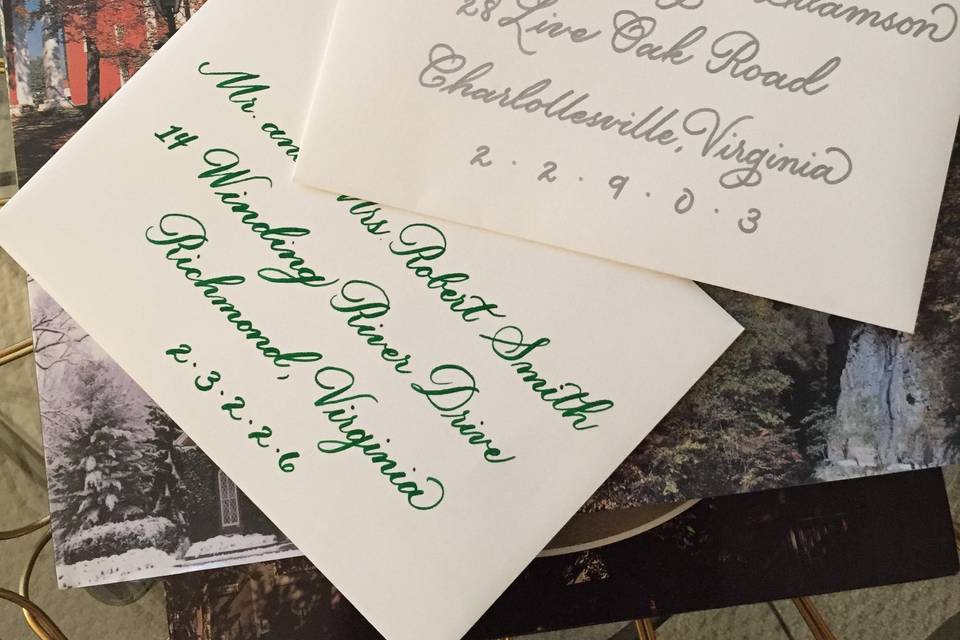 28 Live Oak Road
Charlottesville, Virginia
2 · 2 · 9 · 0 · 3
Mr. and Mrs. Robert Smith
14 Winding River Drive
Richmond, Virginia
2 · 3 · 2 · 2 · 6